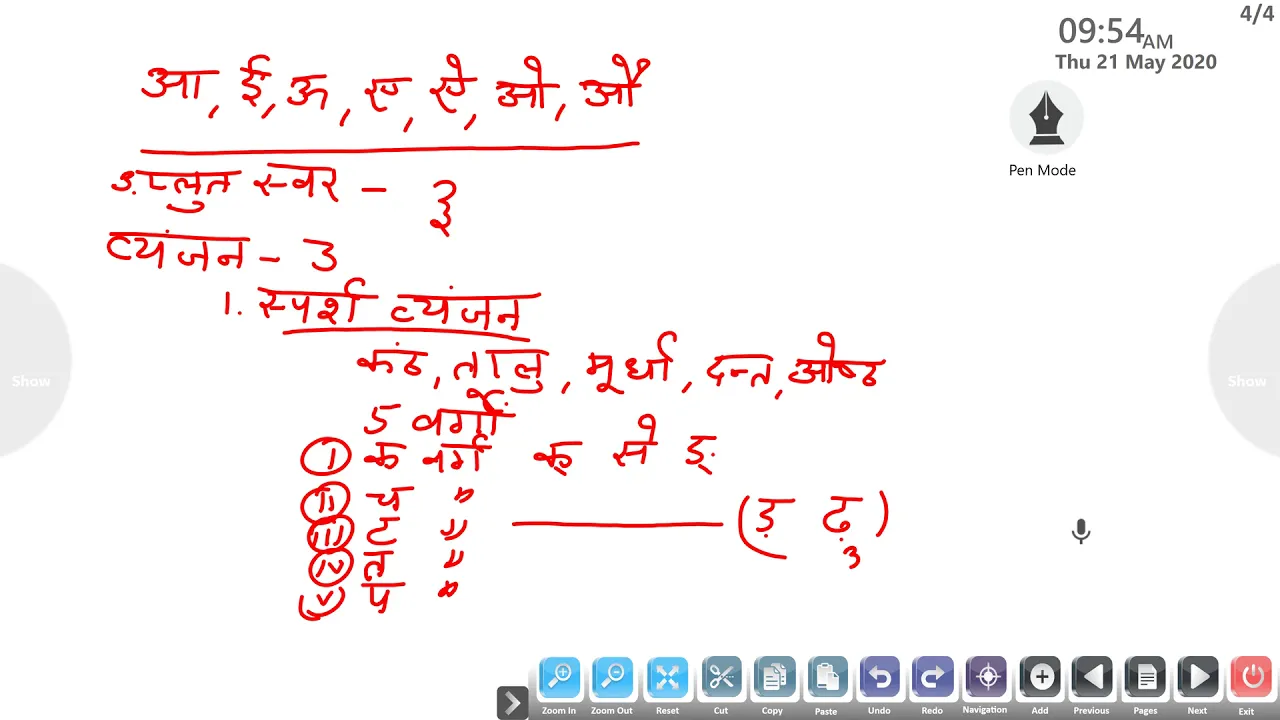 4/4
09:54 AM
Thu 21 May 2020
Pen Mode
आ, ई, ऊ, ए, ऐ, ओ, औ
3. प्लुत स्वर - ३
व्यंजन - 3
1. स्पर्श व्यंजन
कंठ, तालु, मूर्धा, दन्त, ओष्ठ
5 वर्गों
I क वर्ग क् से ङ्
II च "
III ट " (ड़ ढ़)
3
IV त "
V प "
Show
Show
Zoom In Zoom Out Reset Cut Copy Paste Undo Redo Navigation Add Previous Pages Next Exit